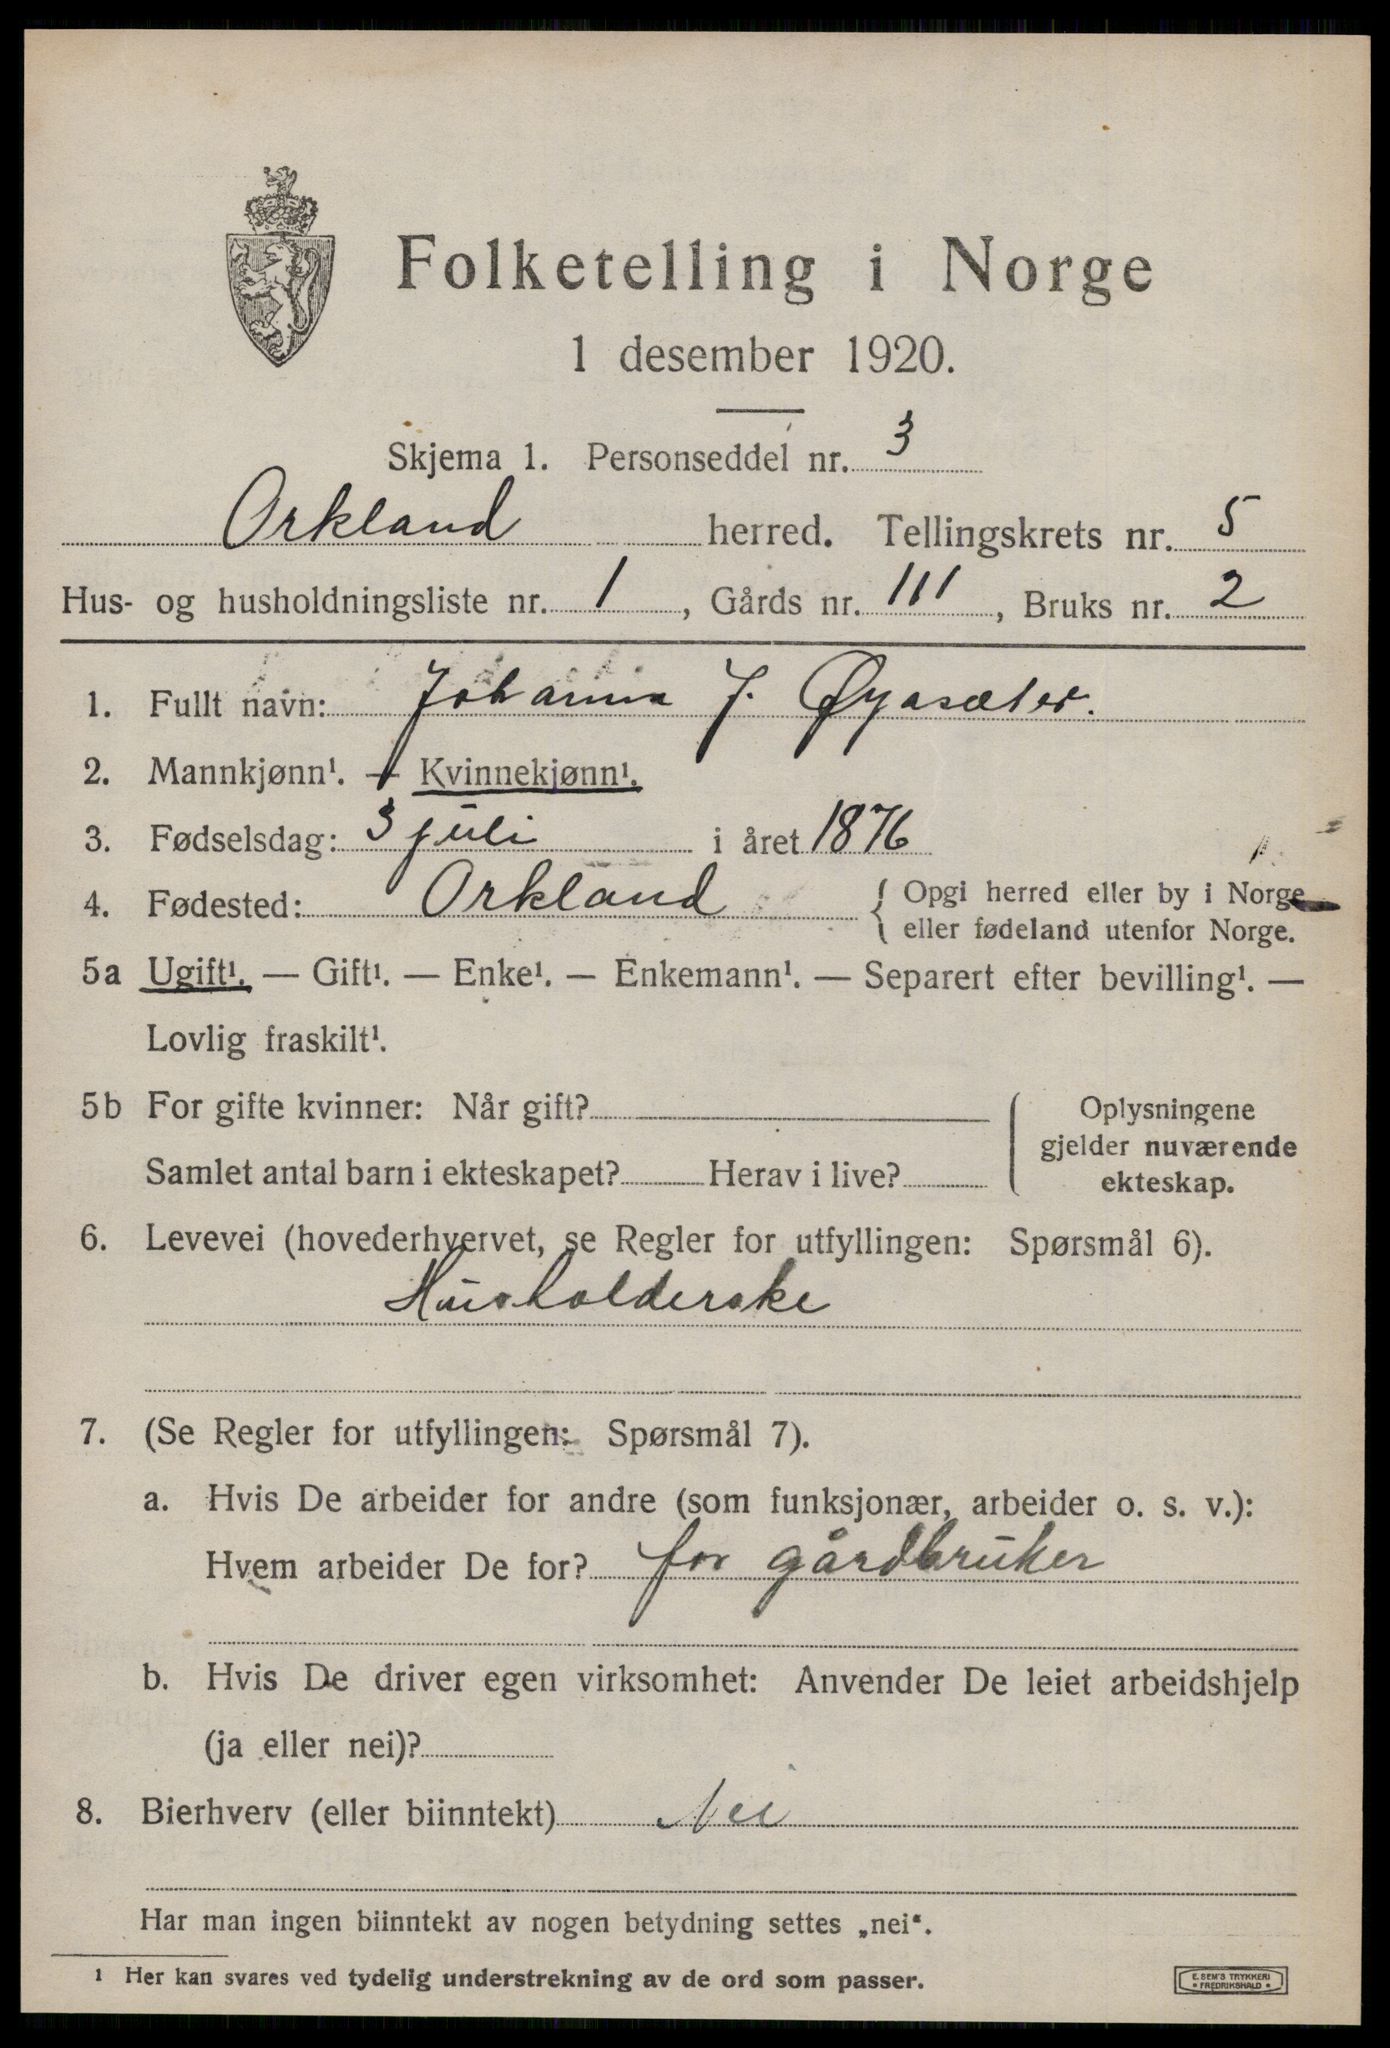 Folketelling i Norge
1 desember 1920.
Skjema 1. Personseddel nr. 3
Orkland herred. Tellingskrets nr. 5
Hus- og husholdningsliste nr. 1, Gårds nr. 111, Bruks nr. 2
1. Fullt navn: Johanna J. Øyasæter.
2. Mannkjønn¹. — Kvinnekjønn¹.
3. Fødselsdag: 3 juli i året 1876
4. Fødested: Orkland { Opgi herred eller by i Norge
eller fødeland utenfor Norge.
5a Ugift¹. — Gift¹. — Enke¹. — Enkemann¹. — Separert efter bevilling¹. —
Lovlig fraskilt¹.
5b For gifte kvinner: Når gift?
Samlet antal barn i ekteskapet? Herav i live?
Oplysningene
gjelder nuværende
ekteskap.
6. Levevei (hovederhvervet, se Regler for utfyllingen: Spørsmål 6).
Husholderske
7. (Se Regler for utfyllingen: Spørsmål 7).
a. Hvis De arbeider for andre (som funksjonær, arbeider o. s. v.):
Hvem arbeider De for? for gårdbruker
b. Hvis De driver egen virksomhet: Anvender De leiet arbeidshjelp
(ja eller nei)?
8. Bierhverv (eller biinntekt) Nei
Har man ingen biinntekt av nogen betydning settes „nei“.
¹ Her kan svares ved tydelig understrekning av de ord som passer.
E. SEM'S TRYKKERI
• FREDRIKSHALD •